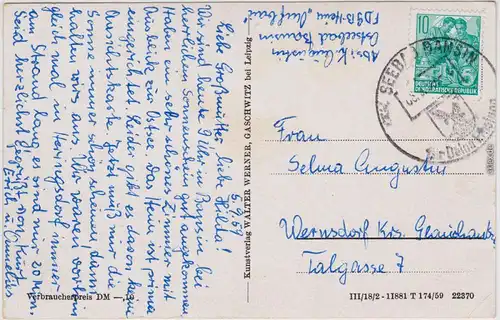 5.9.59
Liebe Großmutter, liebe Hilda!
Wir sind heute 9 Uhr in Bansin bei
herrlichem Sonnenschein gut angekommen
Haben ein sehr schönes Zimmer mit
Ausblick zur Ostsee. Das Heim ist prima
eingerichtet. Leider gibt es davon keine
Ansichtskarte. Jetzt muß nur die
Sonne immer schön scheinen dann
halten wirs aus. Wir waren vorhin
gleich mal in Heringsdorf, immer
am Strand lang es sind nur 20 Min.
Seid herzlichst gegrüßt von Kurt
Erich u. Annelies
Verbraucherpreis DM —,10
Kunstverlag WALTER WERNER, GASCHWITZ bei Leipzig
Abs. K. Augustin
Ostseebad Bansin
FDGB-Heim „Aufbau"
10
DEUTSCHE
DEMOKRATISCHE REPUBLIK
SEEBAD BANSIN
Frau
Selma Augustin
Wernsdorf Krs. Glauchau
Talgasse 7
III/18/2 - II881 T 174/59 22370